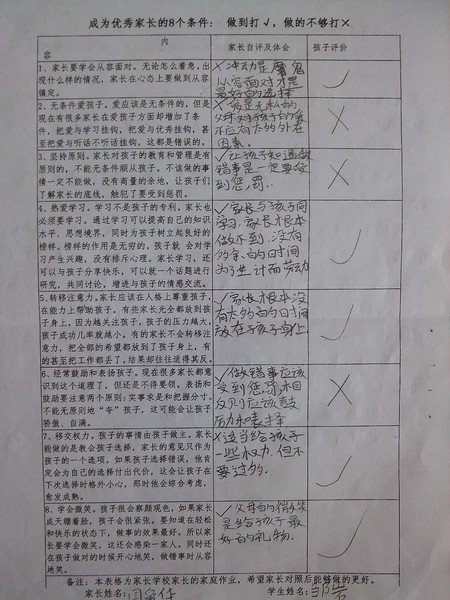 成为优秀家长的8个条件: 做到打√,做的不够打×
内
容
家长自评及体会
孩子评价
1、家长要学会从容面对。无论怎么着急,出
现什么样的情况,家长在心态上要做到从容
镇定。
×冲动是魔鬼
从容面对才是
最好的选择
√
2、无条件爱孩子。爱应该是无私的,但是
现在有很多家长在爱孩子方面却增加了条
件,把爱与学习挂钩,把爱与优秀挂钩,甚
至把爱与听话不听话挂钩,这都是错误的。
√爱是无私的
父母对孩子的爱
不应有太多外在
因素.
×
3、坚持原则。家长对孩子的教育和管理是有
原则的,不能无条件顺从孩子。不该做的事
情一定不能做,没有商量的余地,让孩子们了
解家长的底线,触犯了要受到惩罚。
√让孩子知道做
错事是一定要受
到惩罚.
×
4、热爱学习。学习不是孩子的专利,家长也
必须要学习。通过学习可以提高自己的知识
水平、思想境界,同时为孩子树立起良好的
榜样。榜样的作用是无穷的,孩子就 会对学
习产生兴趣,没有排斥心理。家长学习,还
可以与孩子分享快乐,可以就一个话题进行
研究,共同讨论,增进与孩子的情感交流。
√家长与孩子同
学习.家长根本
做不到.没有
多余的时间
为了生计而劳动
√
5、转移注意力。家长应该在人格上尊重孩子,
在能力上帮助孩子。有些家长光全都放到孩
子身上,因为越关注孩子,孩子的压力越大,
孩子成功几率就越小。有的家长不会转移注
意力,把全部的希望都放到了孩子身上,有
的甚至把工作都丢了,结果却往往适得其反。
√家长根本没
有太多的时间
放在孩子身上.
√
6、经常鼓励和表扬孩子。现在很多家长都意
识到这个道理了,但还是不得要领。表扬和
鼓励要注意两个原则:实事求是和把握分寸。
不能无原则地“夸”孩子,这可能会让孩子
骄傲、自满。
√做错事应该
受到惩罚,相
反则应该鼓
励和表扬
×
7、移交权力。孩子的事情由孩子做主。家长
能做的是教会孩子选择,家长的意见只作为
孩子的一个选项。如果孩子选择错误,他肯
定会为自己的选择付出代价,这会让孩子在
下次选择时格外小心,那时他会综合考虑,
愈发成熟。
×适当给孩子
一些权力.但不
要过多.
√
8、学会微笑。孩子很会察颜观色,如果家长
成天绷着脸,孩子会很紧张。要知道在轻松
和快乐的状态下,做事的效果最好。所以家
长要学会微笑,这还会感染一家人。同时还
在孩子做对的时候开心地笑,做错事时从容
地笑。
√父母的微笑
是给孩子最
好的礼物.
√
备注:本表格为家长学校家长的家庭作业,希望家长对照后能够做的更好。
家长姓名:
学生姓名: